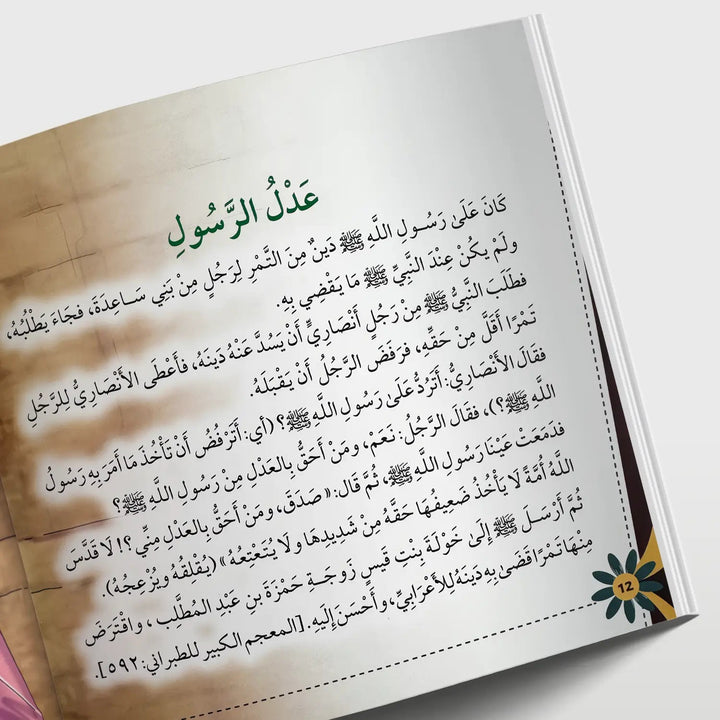 عَدْلُ الرَّسُولِ
كَانَ عَلَى رَسُولِ اللَّهِ ﷺ دَينٌ مِنَ التَّمْرِ لِرَجُلٍ مِنْ بَنِي سَاعِدَةَ، فَجَاءَ يَطْلُبُهُ،
ولَمْ يكُنْ عِنْدَ النَّبِيِّ ﷺ مَا يَقْضِي بِهِ.
فَطَلَبَ النَّبِيُّ ﷺ مِنْ رَجُلٍ أَنْصَارِيٍّ أَنْ يَسُدَّ عَنْهُ دَينَهُ، فَأَعْطَى الأَنْصَارِيُّ لِلرَّجُلِ
تَمْرًا أَقَلَّ مِنْ حَقِّهِ، فرَفَضَ الرَّجُلُ أَنْ يَقْبَلَهُ.
فقَالَ الأَنْصَارِيُّ: أَتَرُدُّ عَلَى رَسُولِ اللَّهِ ﷺ؟ (أي: أَتَرْفُضُ أَنْ تَأْخُذَ مَا أَمَرَ بِهِ رَسُولُ
اللَّهِ ﷺ؟)، فقَالَ الرَّجُلُ: نَعَمْ، ومَنْ أَحَقُّ بِالعَدْلِ مِنْ رَسُولِ اللَّهِ ﷺ؟
فدَمَعَتْ عَيْنَا رَسُولِ اللَّهِ ﷺ، ثُمَّ قَالَ: «صَدَقَ، ومَنْ أَحَقُّ بِالعَدْلِ مِنِّي؟! لَا قَدَّسَ
اللَّهُ أُمَّةً لَا يَأْخُذُ ضَعِيفُهَا حَقَّهُ مِنْ شَدِيدِهَا ولَا يُتَعْتِعُهُ» (يُقْلِقُهُ ويُزْعِجُهُ).
ثُمَّ أَرْسَلَ ﷺ إِلَى خَوْلَةَ بِنْتِ قَيسٍ زَوجَةِ حَمْزَةَ بنِ عَبْدِ المُطَّلِبِ، واقْتَرَضَ
مِنْهَا تَمْرًا قَضَى بِهِ دَينَهُ لِلأَعْرَابِيِّ، وأَحْسَنَ إِلَيهِ. [المعجم الكبير للطبراني: ٥٩٢].
12